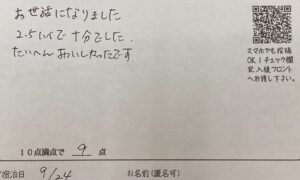 お世話になりました
2.5ハイで十分でした.
たいへんおいしかったです
スマホでも投稿
OK！チェック欄
記入後フロント
へお渡し下さい。
10点満点で 9 点
宿泊日 9/24 お名前(匿名可)